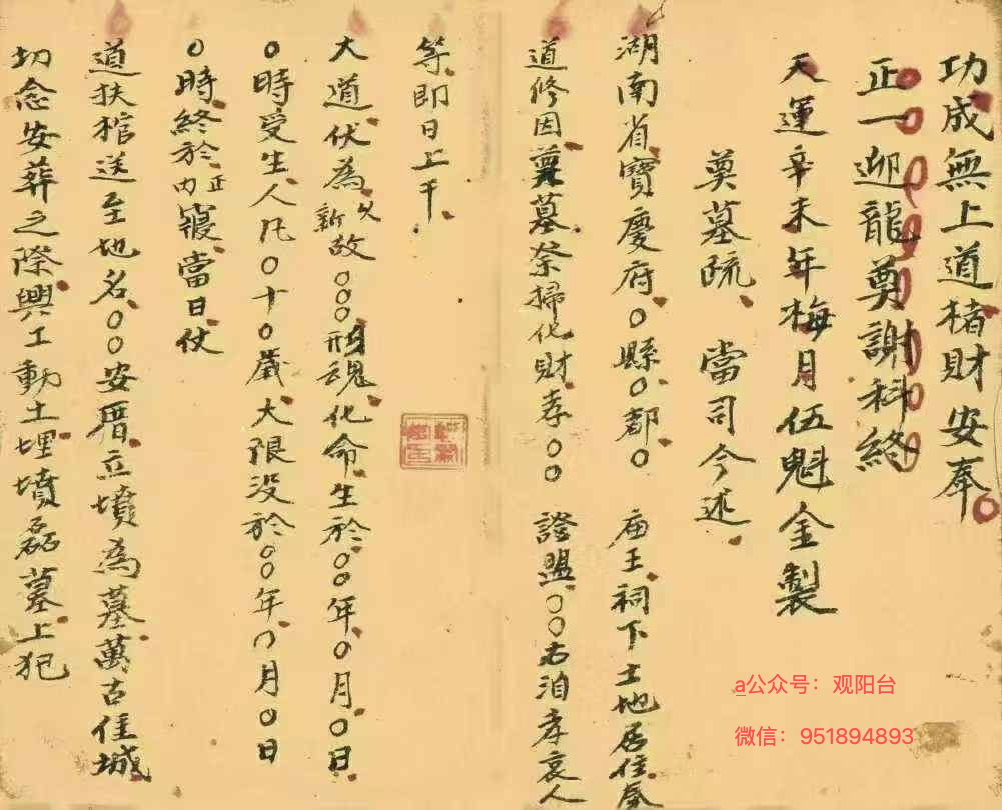 功成無上道楮財安奉
正一迎龍奠謝科終
天運辛未年梅月伍魁金製
奠墓疏 當司今述
湖南省寶慶府〇縣〇都〇 庙王祠下土地居住奉
道修因奠墓祭掃化財孝〇〇 證盟〇〇右洎孝哀人
等即日上干
大道伏為新故父〇〇〇形魂化命生於〇〇年〇月〇日
〇時受生人凡〇十〇歲大限没於〇〇年〇月〇日
〇時終於正内寢當日仗
道扶棺送至地名〇〇安厝立墳為墓萬古佳城
切念安葬之際興工動土埋墳磊墓上犯
a公众号：观阳台
微信：951894893